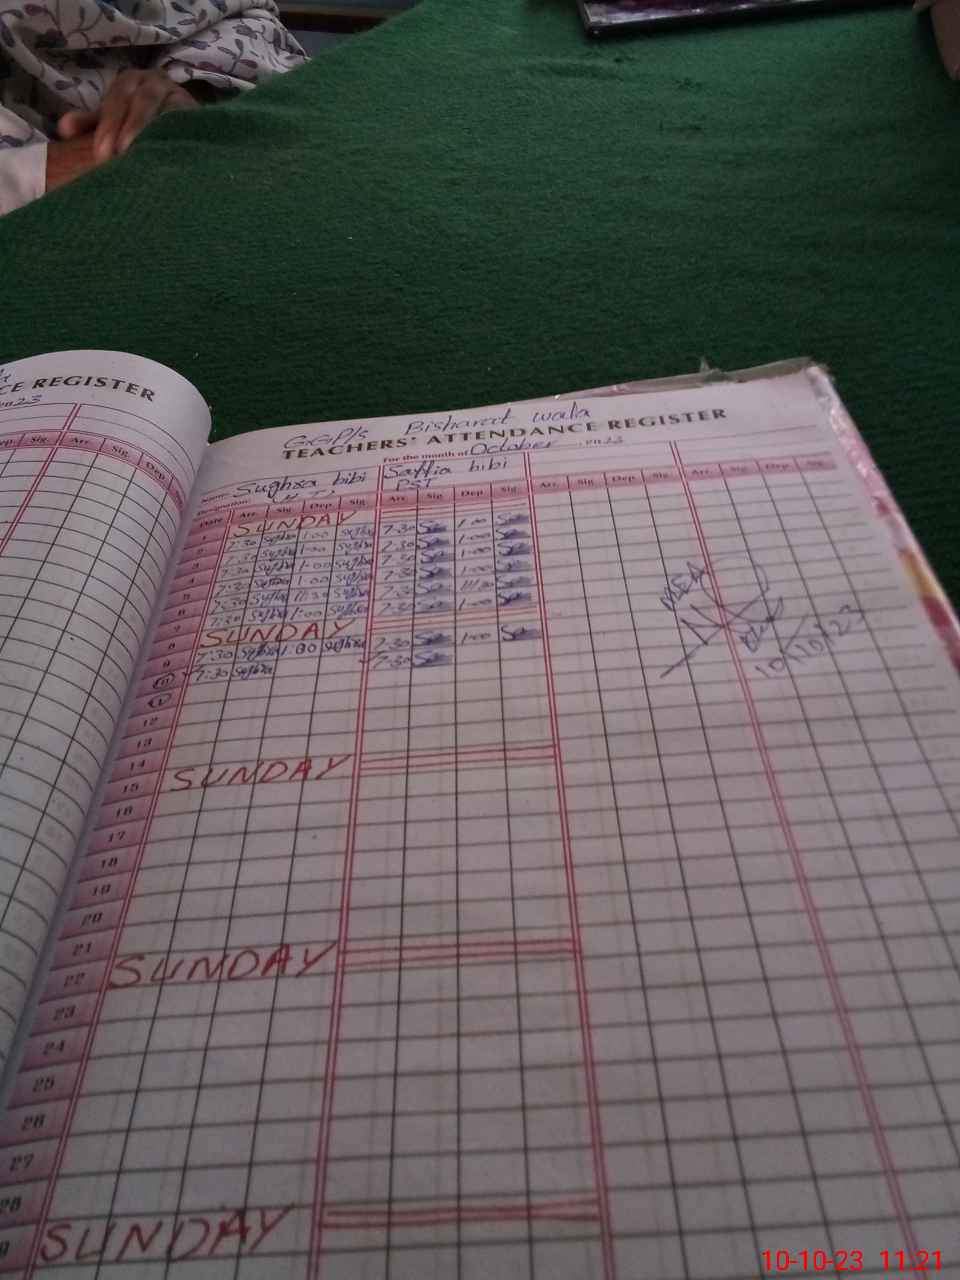 CE REGISTER
23
Dep. Sig. Arr. Sig. Dep
G.G.P/s Bisharat wala
TEACHERS' ATTENDANCE REGISTER
For the month of October 2023
Name: Sughra bibi Saffia bibi
Designation: PST
Date Arr. Sig. Dep. Sig. Arr. Sig. Dep. Sig. Arr. Sig. Dep. Sig. Arr. Sig. Dep. Sig.
1 SUNDAY
2 7:30 Sughra 1:00 Sughra 7:30 1:00
3 7:30 Sughra 1:00 Sughra 7:30 1:00
4 7:30 Sughra 1:00 Sughra 7:30 1:00
5 7:30 Sughra 1:00 Sughra 7:30 1:00
6 7:30 Sughra 11:30 Sughra 7:30 11:30
7 7:30 Sughra 1:00 Sughra 7:30 1:00
8 SUNDAY
9 7:30 Sughra 1:00 Sughra 7:30 1:00
10 7:30 Sughra 7:30
11
12
13
14
15 SUNDAY
16
17
18
19
20
21
22 SUNDAY
23
24
25
26
27
28
SUNDAY
MEA
10/10/23
10-10-23 11:21